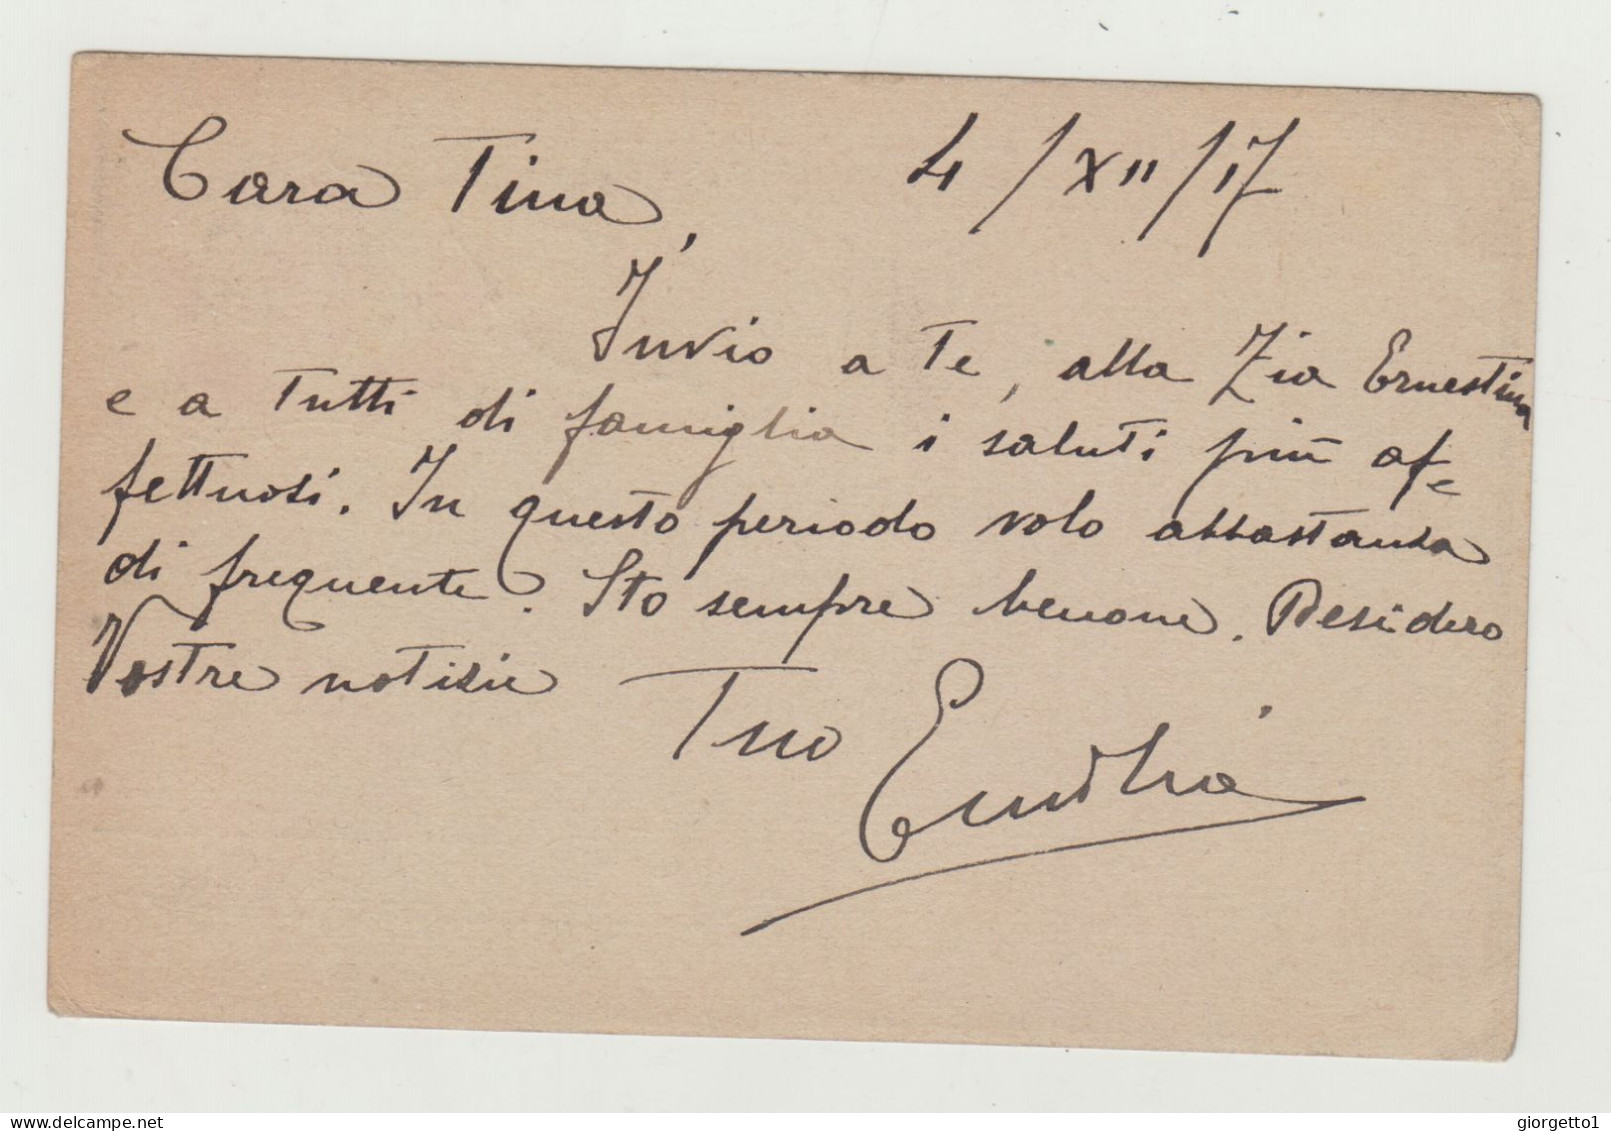 Cara Tina, 4/XII/17
Invio a Te, alla Zia Ernestina
e a Tutti di famiglia i saluti più af=
fettuosi. In questo periodo volo abbastanza
di frequente. Sto sempre benone. Desidero
Vostre notizie Tuo Emilio
delcampe.net
giorgetto1